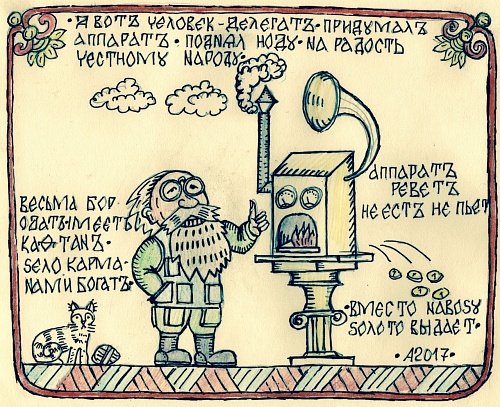 · А ВОТЪ ЧЕЛОВЕК - ДЕЛЕГАТЪ · ПРИДУМАЛЪ
АППАРАТЪ · ПОДНЯЛ НОДУ · НА РАДОСТЬ
ЧЕСТНОМУ НАРОДУ ·
ВЕСЬМА БОР-
ОДАТЪ · ИМЕЕТЪ
КАФТАНЪ ·
ЅЕЛО КАРМА-
НАМИ БОГАТЪ ·
АППАРАТЪ
РЕВЕТЪ
НЕ ЕСТЪ НЕ ПЬЕТ
· ВМЕСТО НАВОЅУ
ЅОЛОТО ВЫДАЕТ ·
· А2017 ·